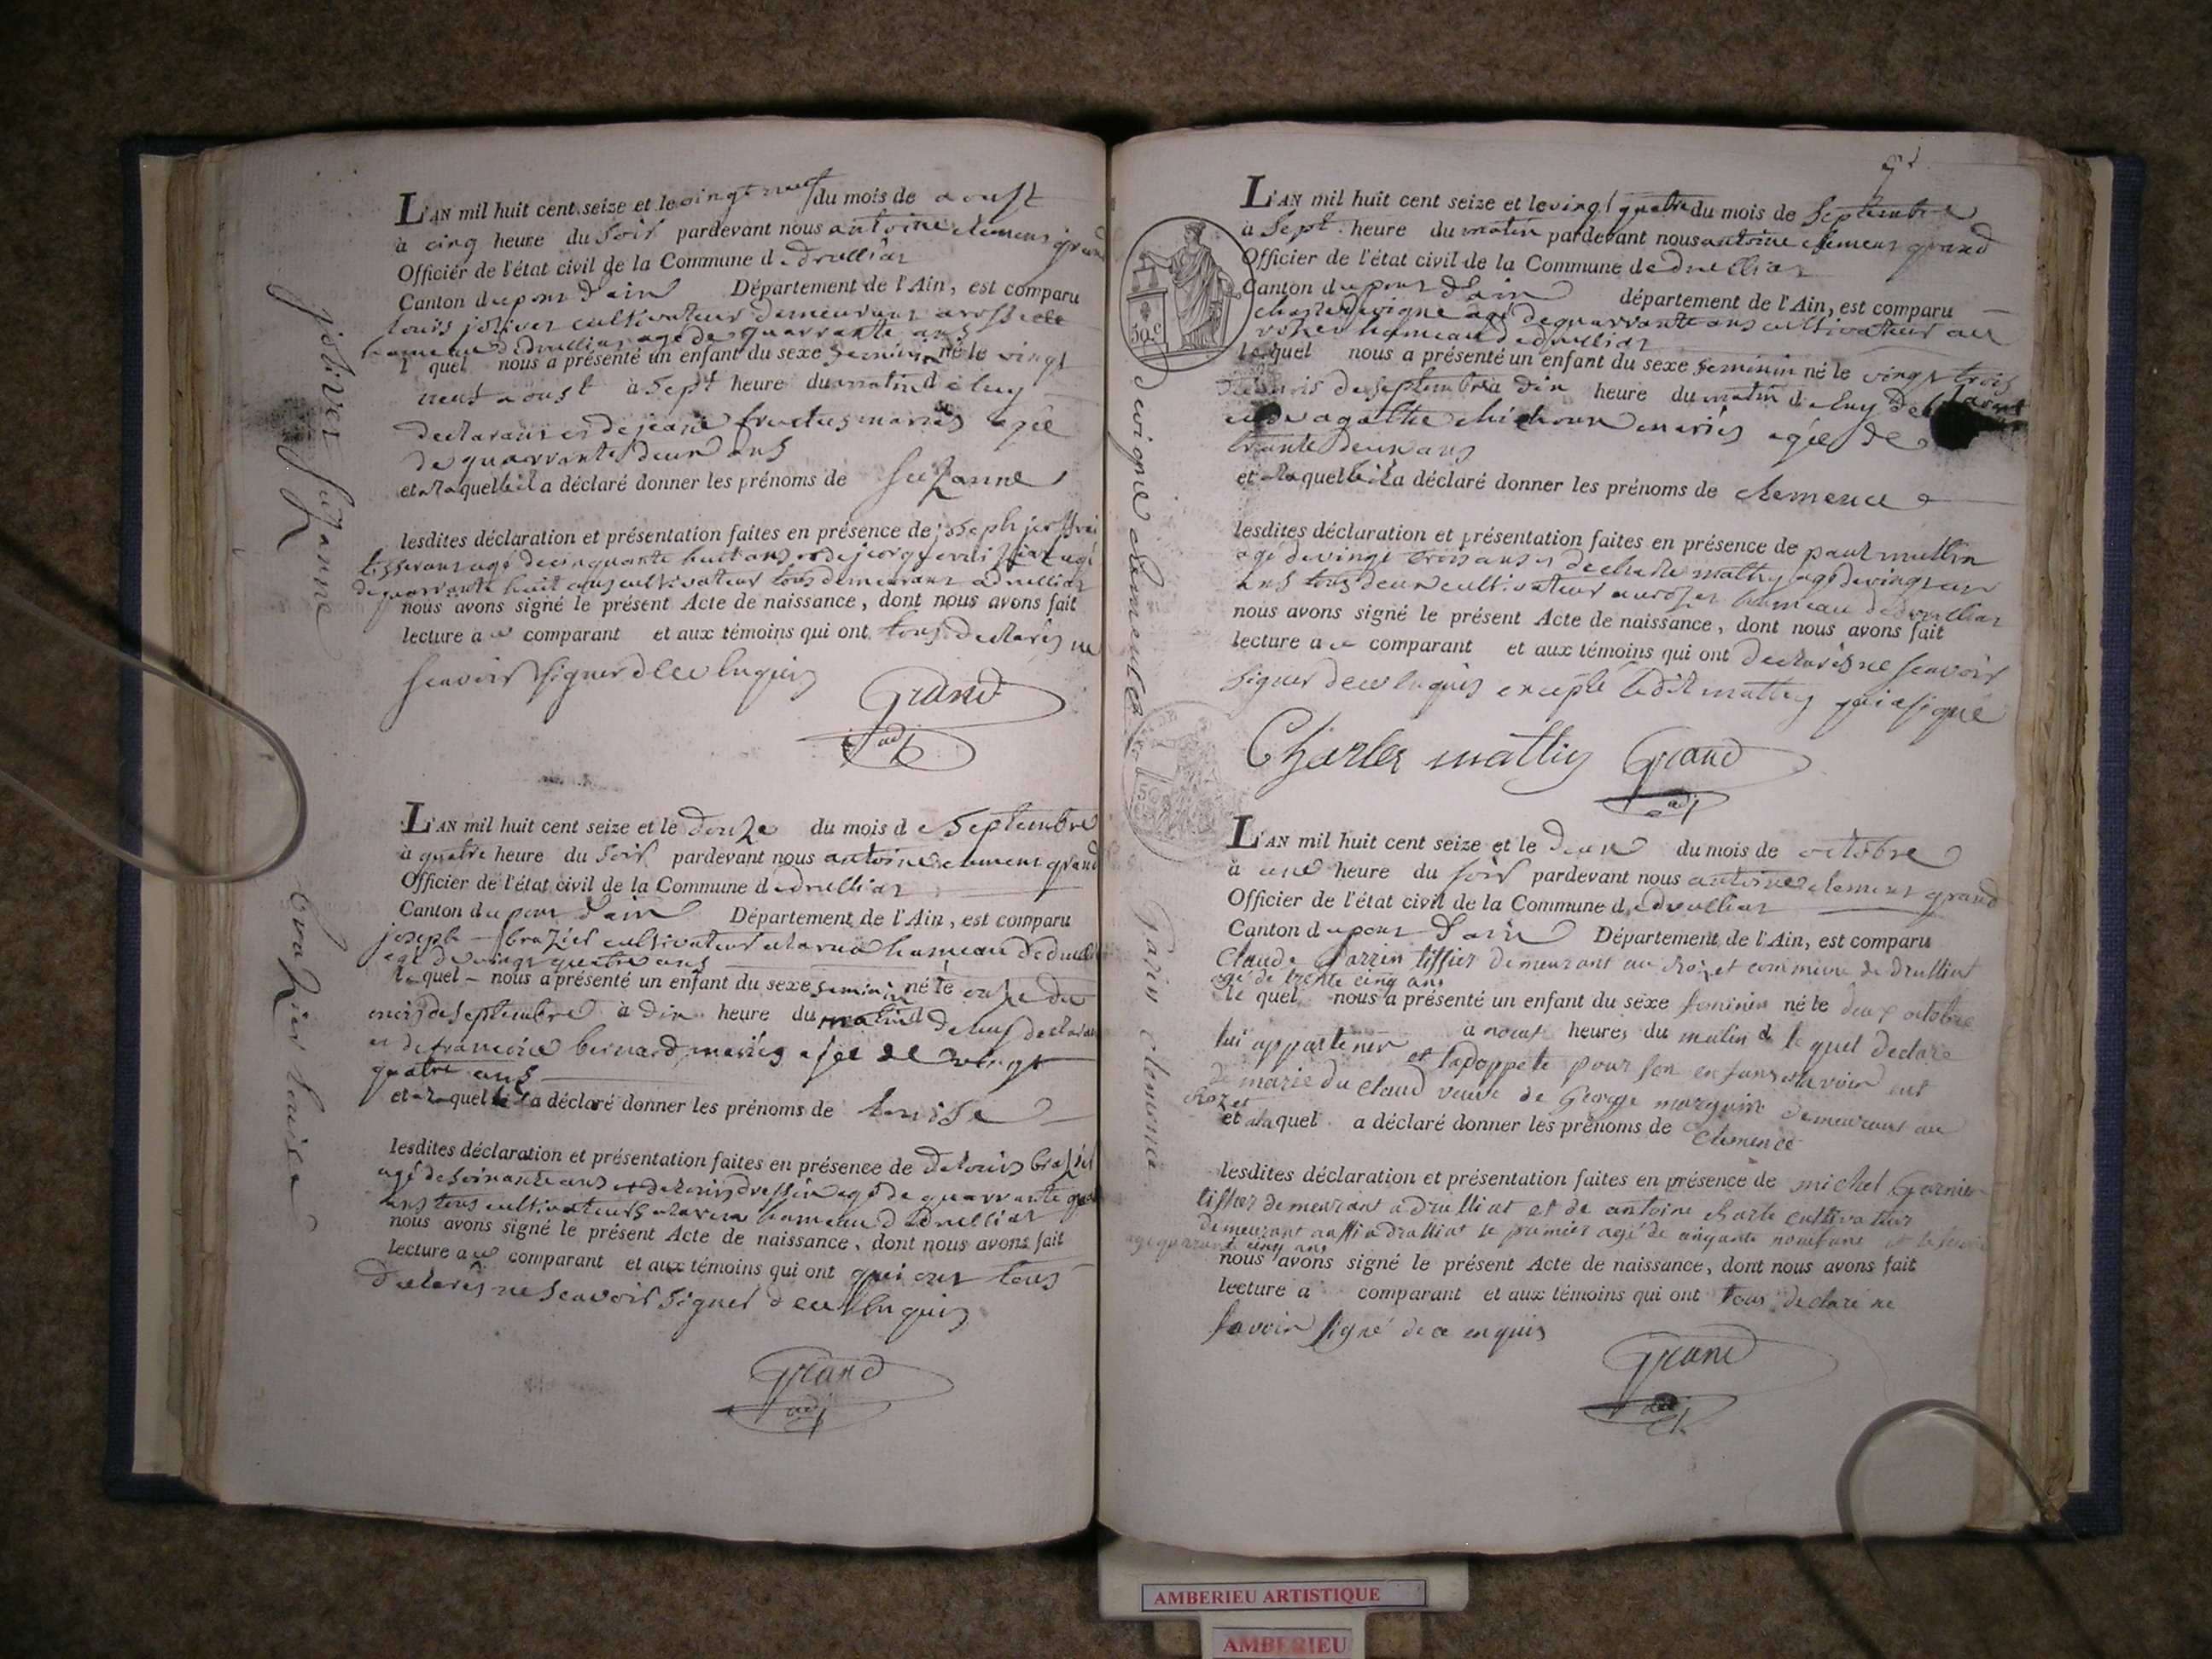 jolivet Suzanne
L'AN mil huit cent seize et le vingt neuf du mois de aoust
à cinq heure du soir pardevant nous antoine clement grand
Officier de l'état civil de la Commune de drulliat
Canton du pont d'ain Département de l'Ain, est comparu
louis jolivet cultivateur demeurant a
hameau de drulliat agé de quarrante ans
lequel nous a présenté un enfant du sexe feminin né le vingt
neuf aoust à sept heure du matin de luy
declarant et de jeane mariés agée
de quarrante deux ans
et a laquelle il a déclaré donner les prénoms de Suzanne
lesdites déclaration et présentation faites en présence de joseph
tisserant agé de cinquante huit ans et de agé
de quarrante huit ans cultivateur tous demeurant a drulliat
nous avons signé le présent Acte de naissance, dont nous avons fait
lecture au comparant et aux témoins qui ont tous declarés ne
scavoir signer de ce enquis
Grand
adj
brazier louise
L'AN mil huit cent seize et le douze du mois de Septembre
à quatre heure du soir pardevant nous antoine clement grand
Officier de l'état civil de la Commune de drulliat
Canton du pont d'ain Département de l'Ain, est comparu
joseph brazier cultivateur hameau de drulliat
agé de vingt quatre ans
lequel nous a présenté un enfant du sexe feminin né le onze du
mois de septembre à dix heure du matin de luy declarant
et de francoise bernard mariés agée de vingt
quatre ans
et a laquelle il a déclaré donner les prénoms de louise
lesdites déclaration et présentation faites en présence de de louis brazier
agé de soixante ans et de louis agé de quarrante
ans tous cultivateurs hameau de drulliat
nous avons signé le présent Acte de naissance, dont nous avons fait
lecture au comparant et aux témoins qui ont qui ont tous
declarés ne scavoir signer de ce enquis
Grand
adj
50 c
devigne clemence
L'AN mil huit cent seize et le vingt quatre du mois de Septembre
à Sept heure du matin pardevant nous antoine clement grand
Officier de l'état civil de la Commune de drulliat
Canton du pont d'ain département de l'Ain, est comparu
charle devigne agé de quarrante ans cultivateur au
rozet hameau de drulliat
lequel nous a présenté un enfant du sexe feminin né le vingt trois
du mois de septembre a dix heure du matin de luy declarant
et de agathe mariés agée de
trante deux ans
et a laquelle il a déclaré donner les prénoms de clemence
lesdites déclaration et présentation faites en présence de paul
agé de vingt trois ans et de charle mathy agé de vingt un
ans tous deux cultivateur au rozet hameau de drulliat
nous avons signé le présent Acte de naissance, dont nous avons fait
lecture a ce comparant et aux témoins qui ont declarés ne scavoir
signer de ce enquis excepté ledit mathy qui a signé
Charles mathy Grand
adj
garin clemence
L'AN mil huit cent seize et le deux du mois de octobre
à une heure du soir pardevant nous antoine clement grand
Officier de l'état civil de la Commune de drulliat
Canton du pont d'ain Département de l'Ain, est comparu
Claude tissier demeurant au rozet commune de drulliat
agé de trente cinq ans
le quel nous a présenté un enfant du sexe feminin né le deux octobre
à neuf heures du matin de le quel declare
lui appartenir et l'adoppete pour son enfant
de marie du claud veuve de George demeurant au
rozet
et a laquel a déclaré donner les prénoms de Clemence
lesdites déclaration et présentation faites en présence de michel Garnier
tissier demeurant a drulliat et de antoine charle cultivateur
demeurant aussi a drulliat le premier agé de cinquante neuf ans et le second
age quarante cinq ans
nous avons signé le présent Acte de naissance, dont nous avons fait
lecture à comparant et aux témoins qui ont tous declaré ne
savoir signé de ce enquis
Grand
adj
AMBERIEU ARTISTIQUE
AMBERIEU